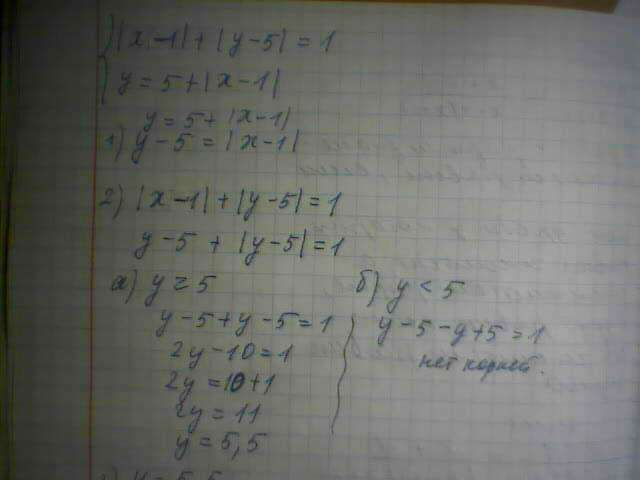 |x-1|+|y-5|=1
y=5+|x-1|
y=5+|x-1|
1) y-5=|x-1|
2) |x-1|+|y-5|=1
y-5+|y-5|=1
а) y≥5
y-5+y-5=1
2y-10=1
2y=10+1
2y=11
y=5,5
б) y<5
y-5-y+5=1
нет корней.